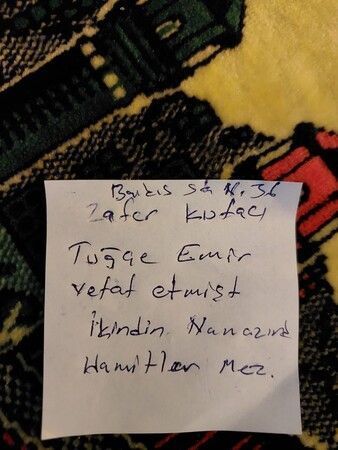 Zafer Kutacı
Tuğçe Emir
vefat etmişt
İkindin Namazınd
Hamitler Mez.